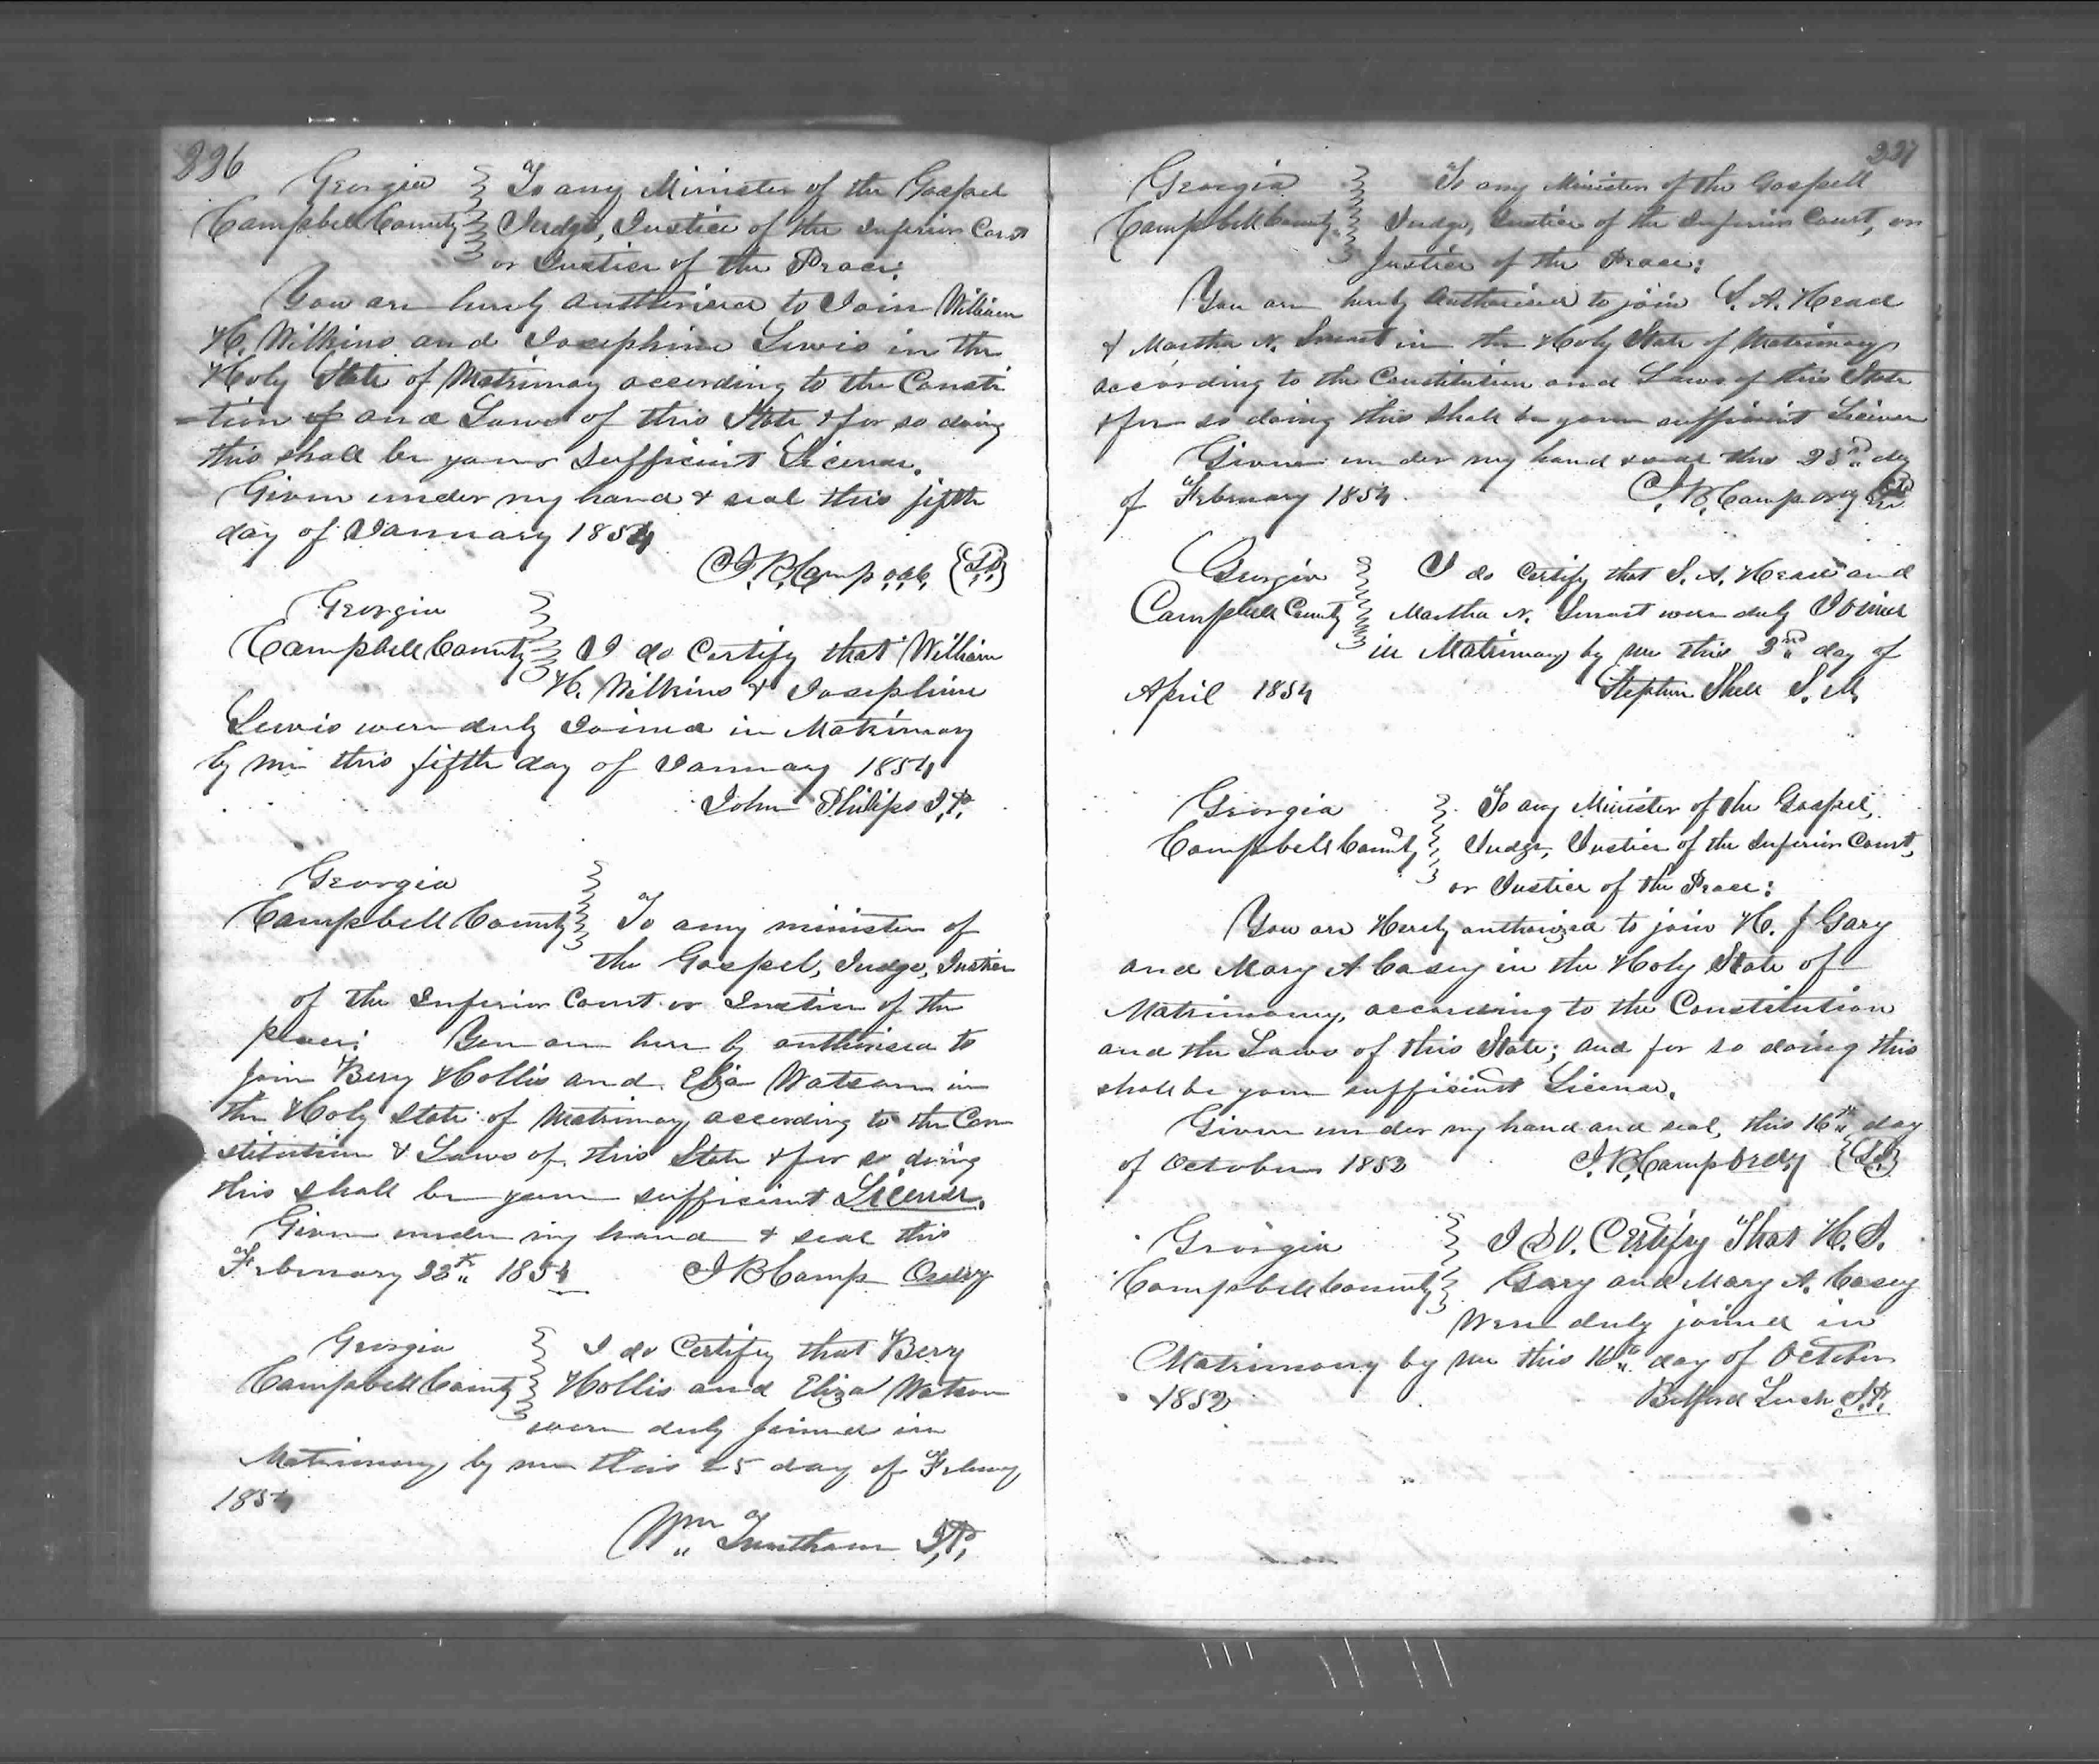 226
Georgia } To any Minister of the Gospel
Campbell County } Judge, Justice of the Inferior Court
or Justice of the Peace:
You are hereby authorised to Join William
H. Wilkins and Josephine Lewis in the
Holy State of Matrimony according to the Consti
=tion of and Laws of this State & for so doing
this shall be your Sufficient License.
Given under my hand & seal this fifth
day of January 1854
J. B. Camp o.c.c. {L.S.}
Georgia
Campbell County } I do Certify that William
H. Wilkins & Josephine
Lewis were duly Joined in Matrimony
by me this fifth day of January 1854
John Philips J.P.
Georgia
Campbell County } To any minister of
the Gospel, Judge, Justice
of the Inferior Court or Justice of the
peace: You are here by authorised to
join Berry Hollis and Eliza Watson in
the Holy State of Matrimony according to the Con
stitution & Laws of this State & for so doing
this shall be your sufficient License.
Given under my hand & seal this
February 22th 1854 J B Camp Ordy
Georgia } I do Certify that Berry
Campbell County } Hollis and Eliza Watson
were duly Joined in
Matrimony by me this 25 day of Febuary
1854
Wm J.P.
227
Georgia } To any Minister of the Gospell
Campbell County } Judge, Justice of the Inferior Court, or
Justice of the Peace:
You are hereby Authorised to join S. A. Head
& Martha N. Smart in the Holy State of Matrimony
according to the Constitution and Laws of this State
& for so doing this shall be your sufficient License
Given under my hand & seal this 23rd day
of February 1854. J. B. Camp ordy
Georgia } I do Certify that S. A. Head and
Campbell County } Martha N. Smart were duly Joined
in Matrimony by me this 2nd day of
April 1854 Stephen Shell J. M.
Georgia } To any Minister of the Gospel,
Campbell County } Judge, Justice of the Inferior Court,
or Justice of the Peace:
You are Hereby authorized to join H. J Gary
and Mary A Casey in the Holy State of
Matrimony, according to the Constitution
and the Laws of this State; and for so doing this
shall be your sufficient License.
Given under my hand and seal, this 16th day
of October 1852 J. B. Camp Ordy {L.S.}
Georgia } I DO. Certify That H. J.
Campbell County } Gary and Mary A. Casey
Were duly joined in
Matrimony by me this 16th day of October
1852 J.P.